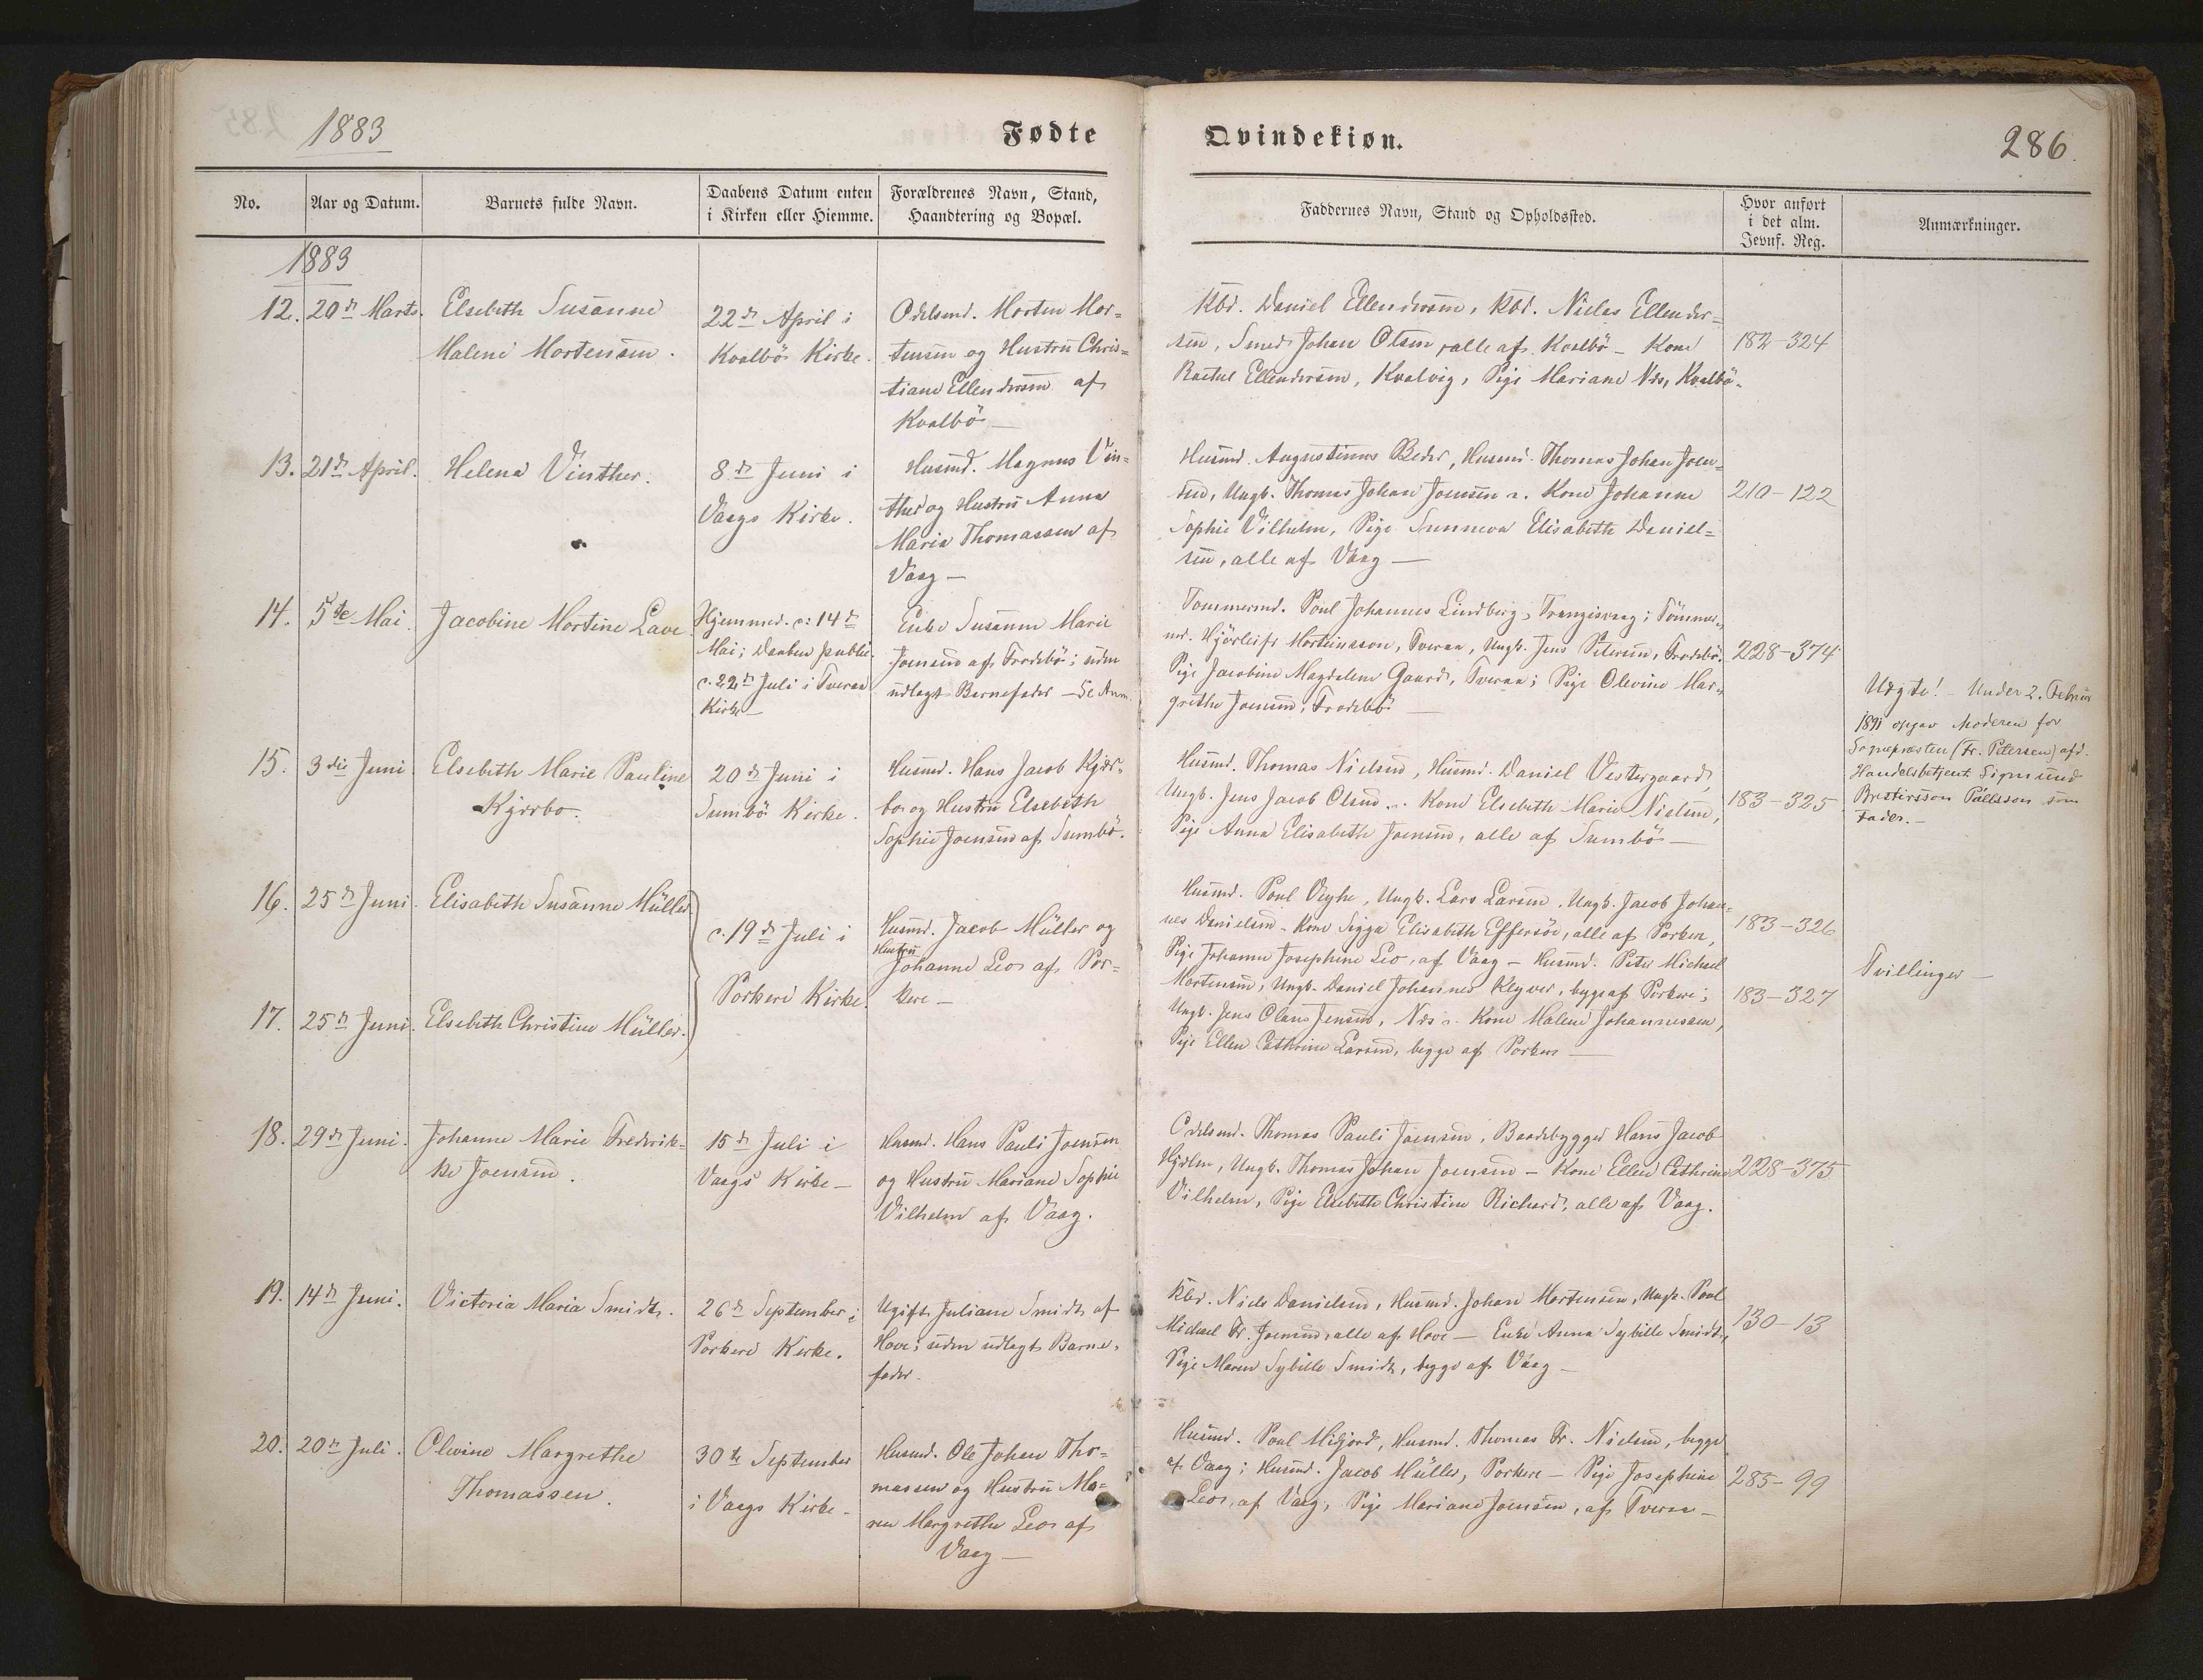 1883
Fødte
Qvindekiøn.
286.
No.
Aar og Datum.
Barnets fulde Navn.
Daabens Datum enten
i Kirken eller Hiemme.
Forældrenes Navn, Stand,
Haandtering og Bopæl.
Faddernes Navn, Stand og Opholdssted.
Hvor anført
i det alm.
Jevnf. Reg.
Anmærkninger.
1883
12.
20de Marts.
Elsebeth Susanne
Malene Mortensen.
22de April i
Kvalbö Kirke.
Odelsmd. Morten Mor=
tensen og Hustru Chris=
tiane Ellendersen af
Kvalbö —
Kbd. Daniel Ellendersen, Kbd. Niclas Ellender=
sen, Smed Johan Olsen, alle af Kvalbö — Kone
Rachel Ellendersen, Kvalvig, Pige Mariane Nds, Kvalbö.
182-324
13.
21de April.
Helena Vinther.
8de Juni i
Vaags Kirke.
Husmd. Magnus Vin=
ther og Hustru Anna
Maria Thomassen af
Vaag —
Husmd. Augustinus Beder, Husmd. Thomas Johan Joen=
sen, Ungk. Thomas Johan Joensen .. Kone Johanne
Sophie Vilhelm, Pige Sunneva Elisabeth Daniel=
sen, alle af Vaag —
210-122
14.
5te Mai.
Jacobine Mortine Lave
Hjemmed. c: 14de
Mai; Daaben public.
c. 22de Juli i Tveraa
Kirke —
Enke Susanne Marie
Joensen af Frodebö; uden
udlagt Barnefader — Se Anm.
Tømmermd. Poul Johannes Lindberg, Trangisvaag; Tömmer=
md. Hjörleif Morteinsson, Tveraa, Ungk. Jens Petersen, Frodebö.
Pige Jacobine Magdalene Gaard, Tveraa; Pige Olevine Mar=
grethe Joensen, Frodebö —
228-374
Uægte! — Under 2. Februar
1891 opgav Moderen for
Sognepræsten (Fr. Petersen) afd.
Handelsbetjent Sigmund
Brestirsson Pállsson som
Fader. —
15.
3die Juni
Elsebeth Marie Pauline
Kjærbo.
20de Juni i
Sumbö Kirke.
Husmd. Hans Jacob Kjær=
bo og Hustru Elsebeth
Sophie Joensen af Sumbö.
Husmd. Thomas Nielsen, Husmd. Daniel Vestergaard,
Ungk. Jens Jacob Olsen .. Kone Elsebeth Marie Nielsen,
Pige Anna Elisabeth Joensen, alle af Sumbö —
183-325
16.
25de Juni.
Elisabeth Susanne Müller
c. 19de Juli i
Porkeri Kirke
Husmd. Jacob Müller og
Hustru
Johanne Leo af Por=
kere —
Husmd. Poul Veyhe, Ungk. Lars Larsen, Ungk. Jacob Johan=
nes Danielsen — Kone Sigga Elisabeth Effersöe, alle af Porkere,
Pige Johanne Josephine Leo, af Vaag — Husmd. Peter Michael
Mortensen, Ungk. Daniel Johannes Kleyver, begge af Porkere;
Ungk. Jens Olaus Jensen, Nds .. Kone Malene Johannesen,
Pige Ellen Cathrine Larsen, begge af Porkere —
183-326
183-327
Tvillinger —
17.
25de Juni.
Elsebeth Christine Müller.
18.
29de Juni.
Johanne Marie Frederik=
ke Joensen.
15de Juli i
Vaags Kirke —
Husmd. Hans Pauli Joensen
og Hustru Mariane Sophie
Vilhelm af Vaag.
Odelsmd. Thomas Pauli Joensen, Baadebygger Hans Jacob
Hjelm, Ungk. Thomas Johan Joensen — Kone Ellen Cathrine
Vilhelm, Pige Elsebeth Christine Richard, alle af Vaag.
228-375
19.
14de Juni.
Victoria Maria Smidt.
26de September i
Porkeri Kirke.
Ugift Juliane Smidt af
Hove; uden udlagt Barne=
fader.
Kbd. Niels Danielsen, Husmd. Johan Mortensen, Ungk. Poul
Michael Fr. Joensen, alle af Hove — Enke Anna Sybille Smidt,
Pige Maren Sybille Smidt, begge af Vaag —
130-13
20.
20de Juli.
Olevine Margrethe
Thomassen.
30te September
i Vaags Kirke —
Husmd. Ole Johan Tho=
massen og Hustru Ma=
ren Margrethe Leo af
Vaag —
Husmd. Poul Midjord, Husmd. Thomas Fr. Nielsen, begge
af Vaag; Husmd. Jacob Müller, Porkere — Pige Josephine
Leo, af Vaag, Pige Mariane Joensen, af Tveraa —
285-99